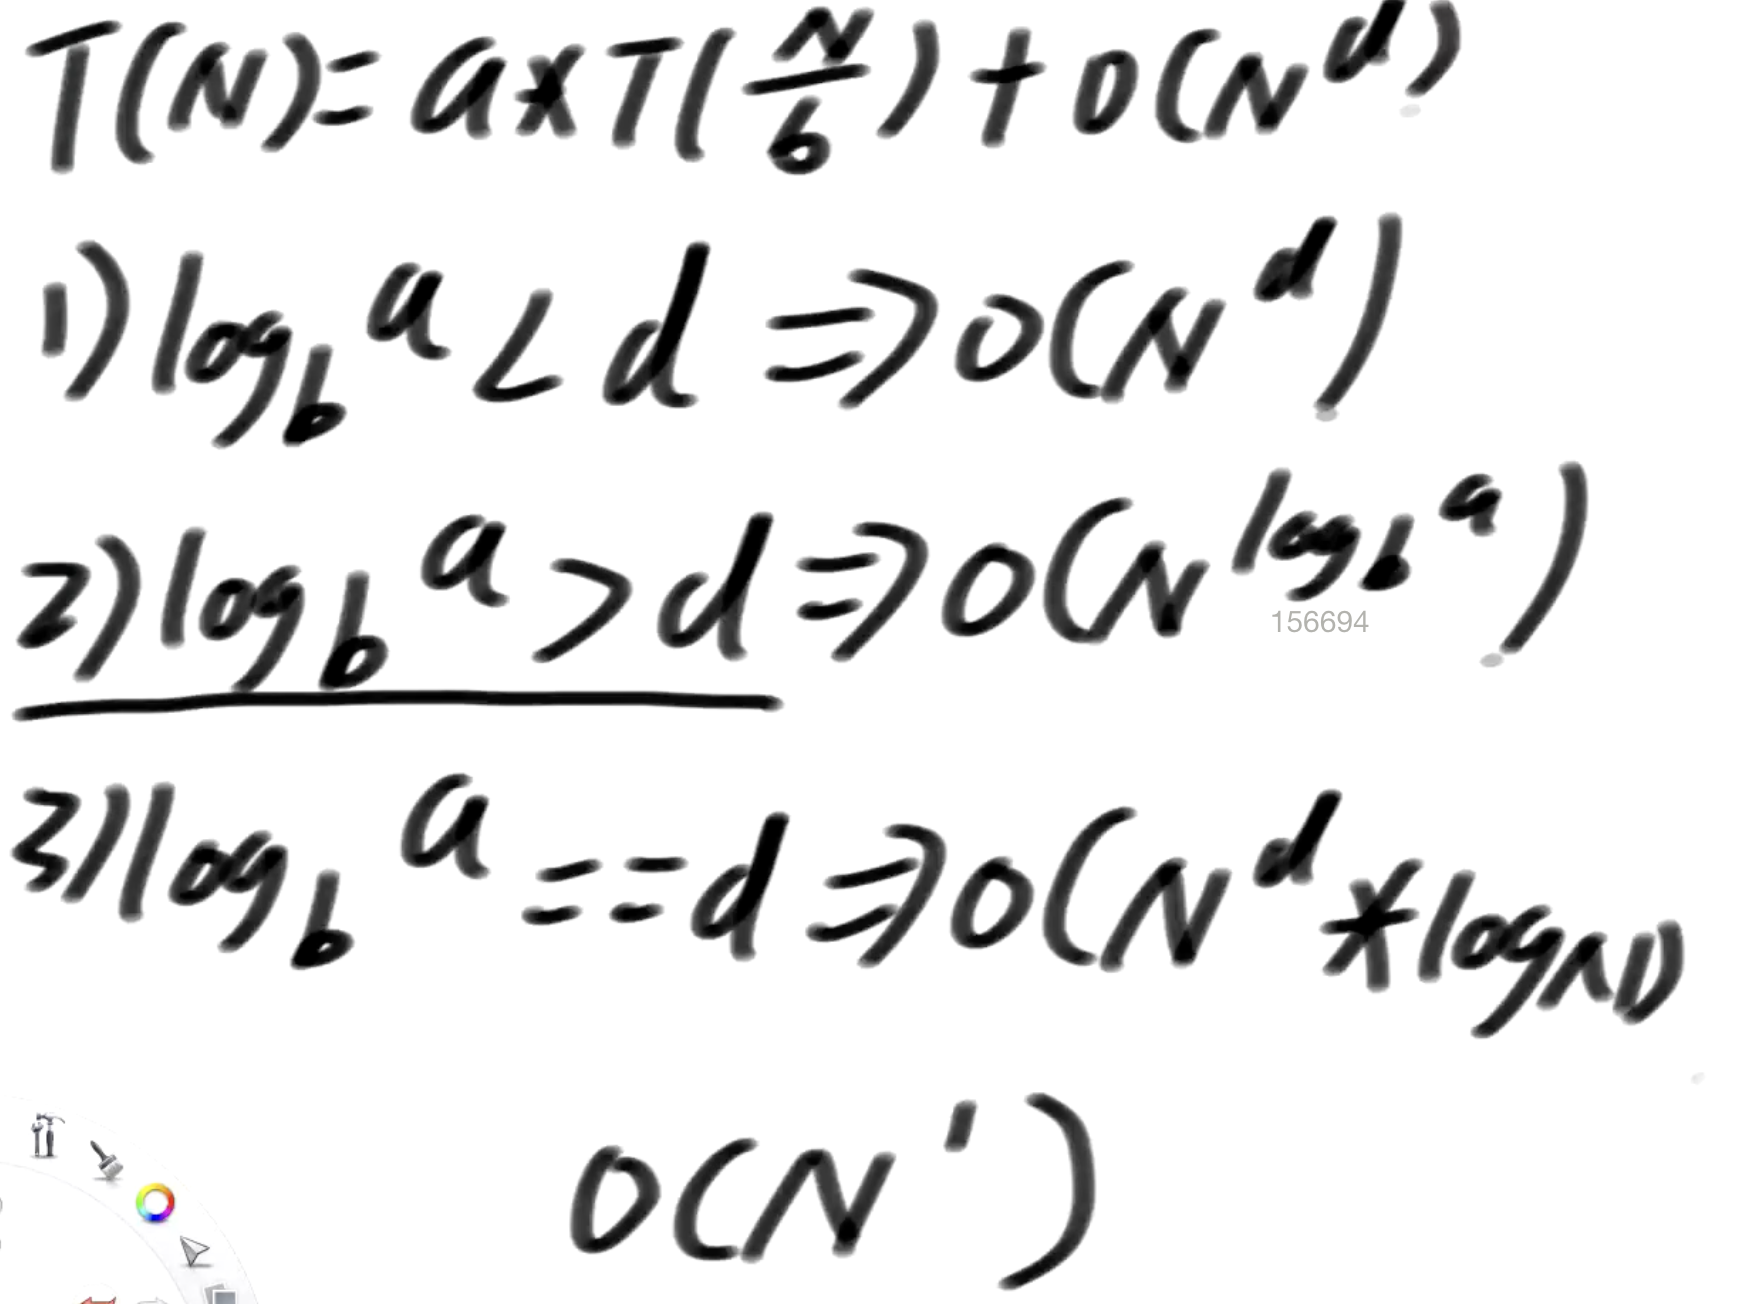 T(N)= a*T(N/b)+O(N^d)
1) log_b^a < d => O(N^d)
2) log_b^a > d => O(N^log_b^a)
156694
3) log_b^a == d => O(N^d * logN)
O(N^1)